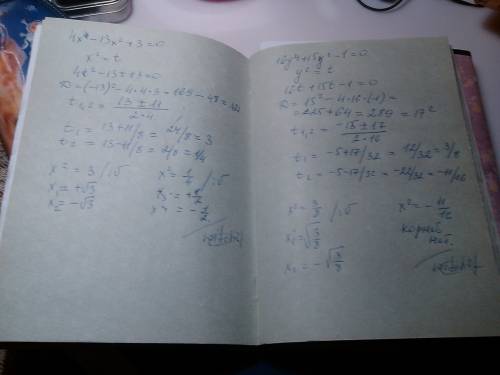 4x⁴-13x²+3=0
x²=t
4t²-13t+3=0
D=(-13)²-4·4·3=169-48=121
t₁,₂= 13±11 / 2·4
t₁= 13+11/8 = 24/8 = 3
t₂= 13-11/8 = 2/8 = 1/4
x²=3 /:√
x₁=+√3
x₂=-√3
x²=1/4 /:√
x₃=+1/2
x₄=-1/2
16y⁴+15y²-1=0
y²=t
16t²+15t-1=0
D=15²-4·16·(-1)=
=225+64=289=17²
t₁,₂= -15±17 / 2·16
t₁=-5+17/32=12/32=3/8
t₂=-5-17/32=-22/32=-11/16
x²=3/8 /:√
x₁=√3/8
x₂=-√3/8
x²=-11/16
корней